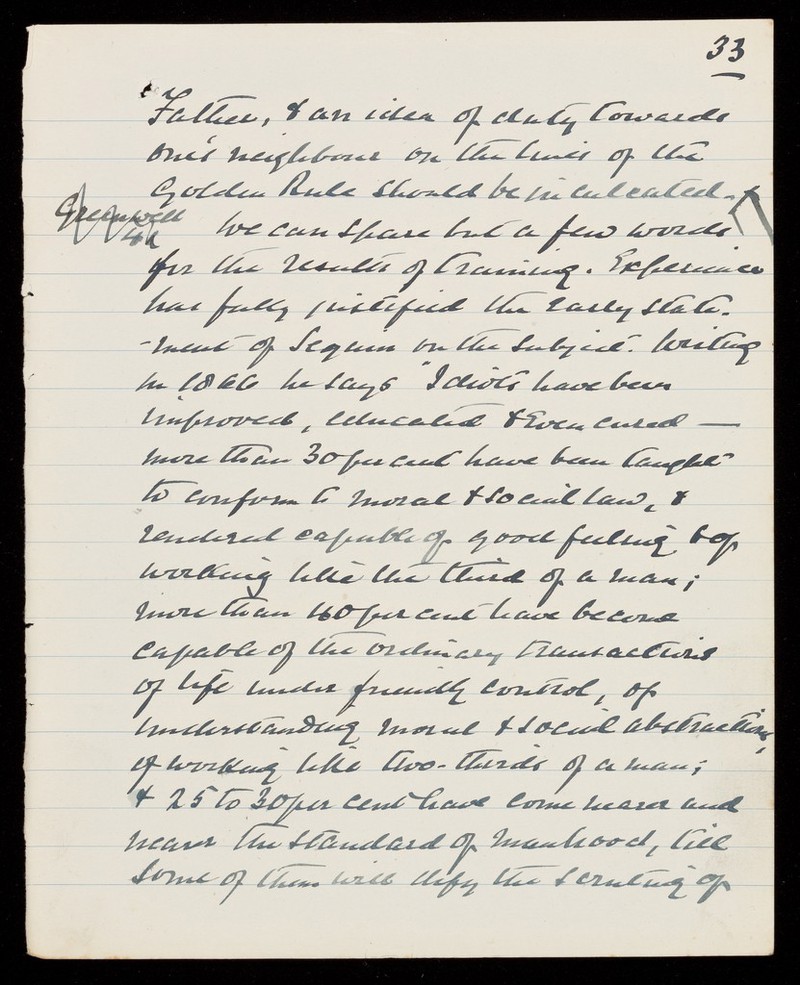 33
Father, & an idea of duty towards
one's neighbour on the lines of the
Golden Rule should be inculcated.
Greenwell
4h
We can spare but a few words
for the results of training. Experience
has fully justified the early state-
-ment of Seguin on the subject. Writing
in 1866 he says "Idiots have been
improved, educated & even cured —
more than 30 per cent have been taught
to conform to moral & social law, &
rendered capable of good feeling & of
working like the third of a man;
more than 40 per cent have become
capable of the ordinary transactions
of life under friendly control, of
understanding moral & social abstractions,
of working like two-thirds of a man;
& 25 to 30 per cent have come nearer and
nearer the standard of manhood, till
some of them will defy the scrutiny of